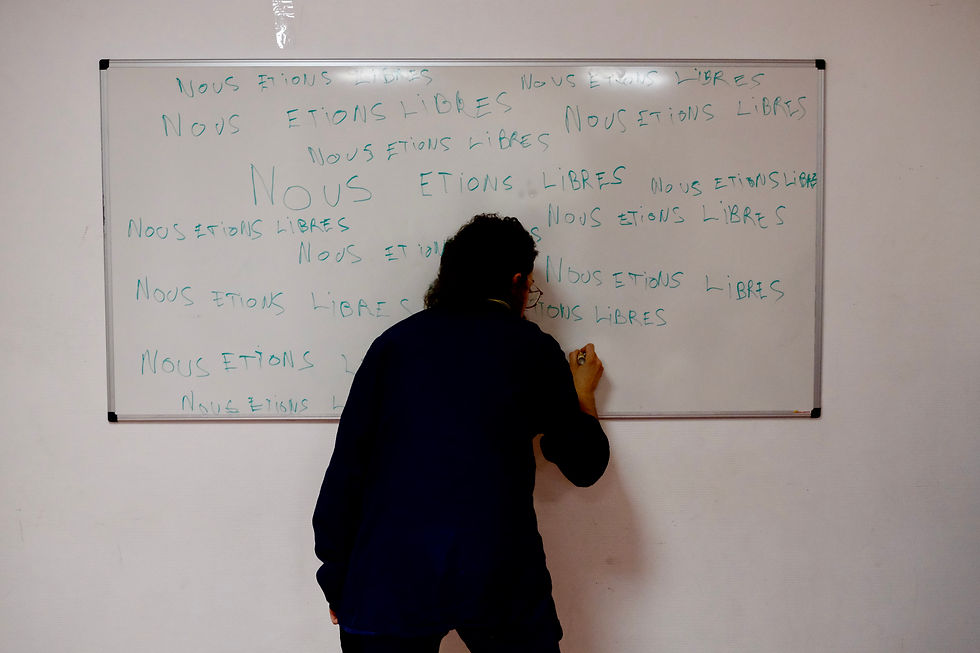 NOUS ETIONS LIBRES
NOUS ETIONS LIBRES
NOUS ETIONS LIBRES
NOUS ETIONS LIBRES
NOUS ETIONS LIBRES
NOUS ETIONS LIBRES
NOUS ETIONS LIBRES
NOUS ETIONS LIBRES
NOUS ETIONS LIBRES
NOUS
NOUS ETIONS LIBRES
NOUS ETIONS LIBRES
LIBRES
NOUS ETIONS
NOUS ETIONS